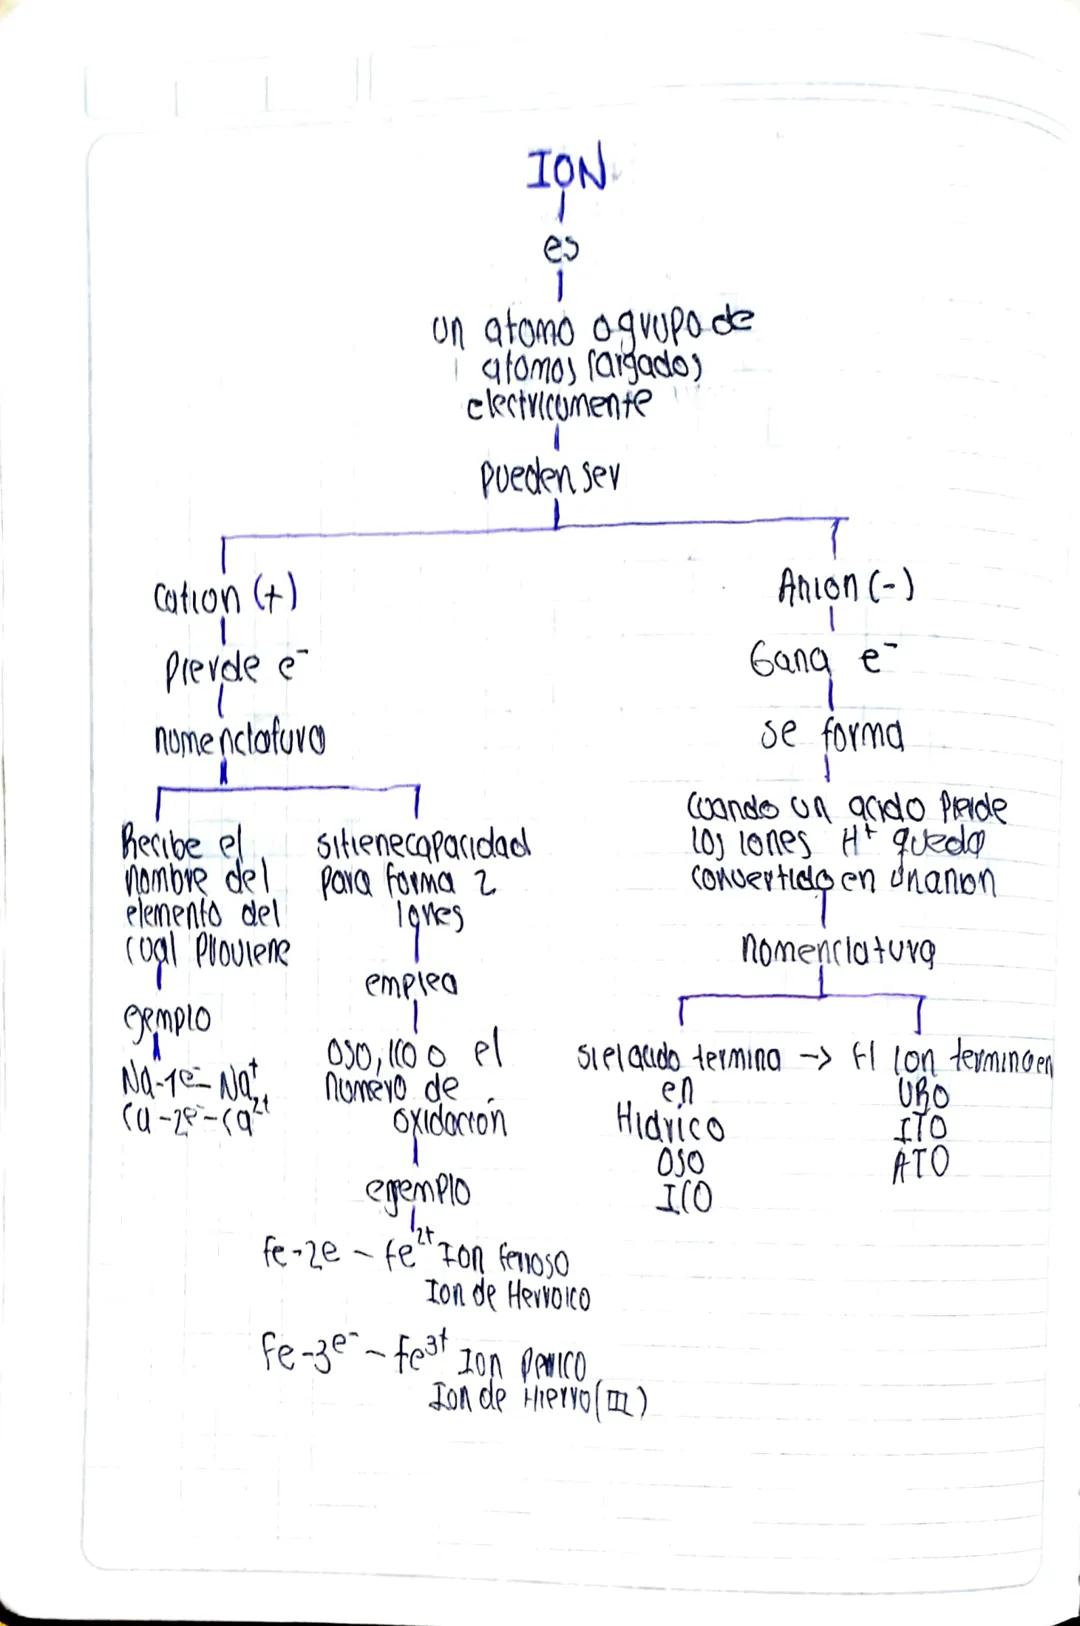 ION
es
un atomo o grupo de
atomos cargados
electricamente
pueden ser
Cation (+)
Pierde e⁻
nomenclatura
Recibe el
nombre del
elemento del
cual Proviene
ejemplo
Na-1e⁻- Na⁺
Ca-2e⁻-Ca²⁺
si tiene capacidad
para forma 2
iones
emplea
OSO, ICO o el
numero de
oxidación
ejemplo
Fe-2e - Fe²⁺ Ion ferroso
Ion de Hierro
Fe-3e⁻ - Fe³⁺ Ion
Ion de Hierro (III)
Anion (-)
Gana e⁻
se forma
Cuando un acido Pierde
los iones H⁺ queda
convertido en un anion
nomenclatura
si el acido termina -> El Ion termina en
en
Hidrico
OSO
ICO
URO
ITO
ATO